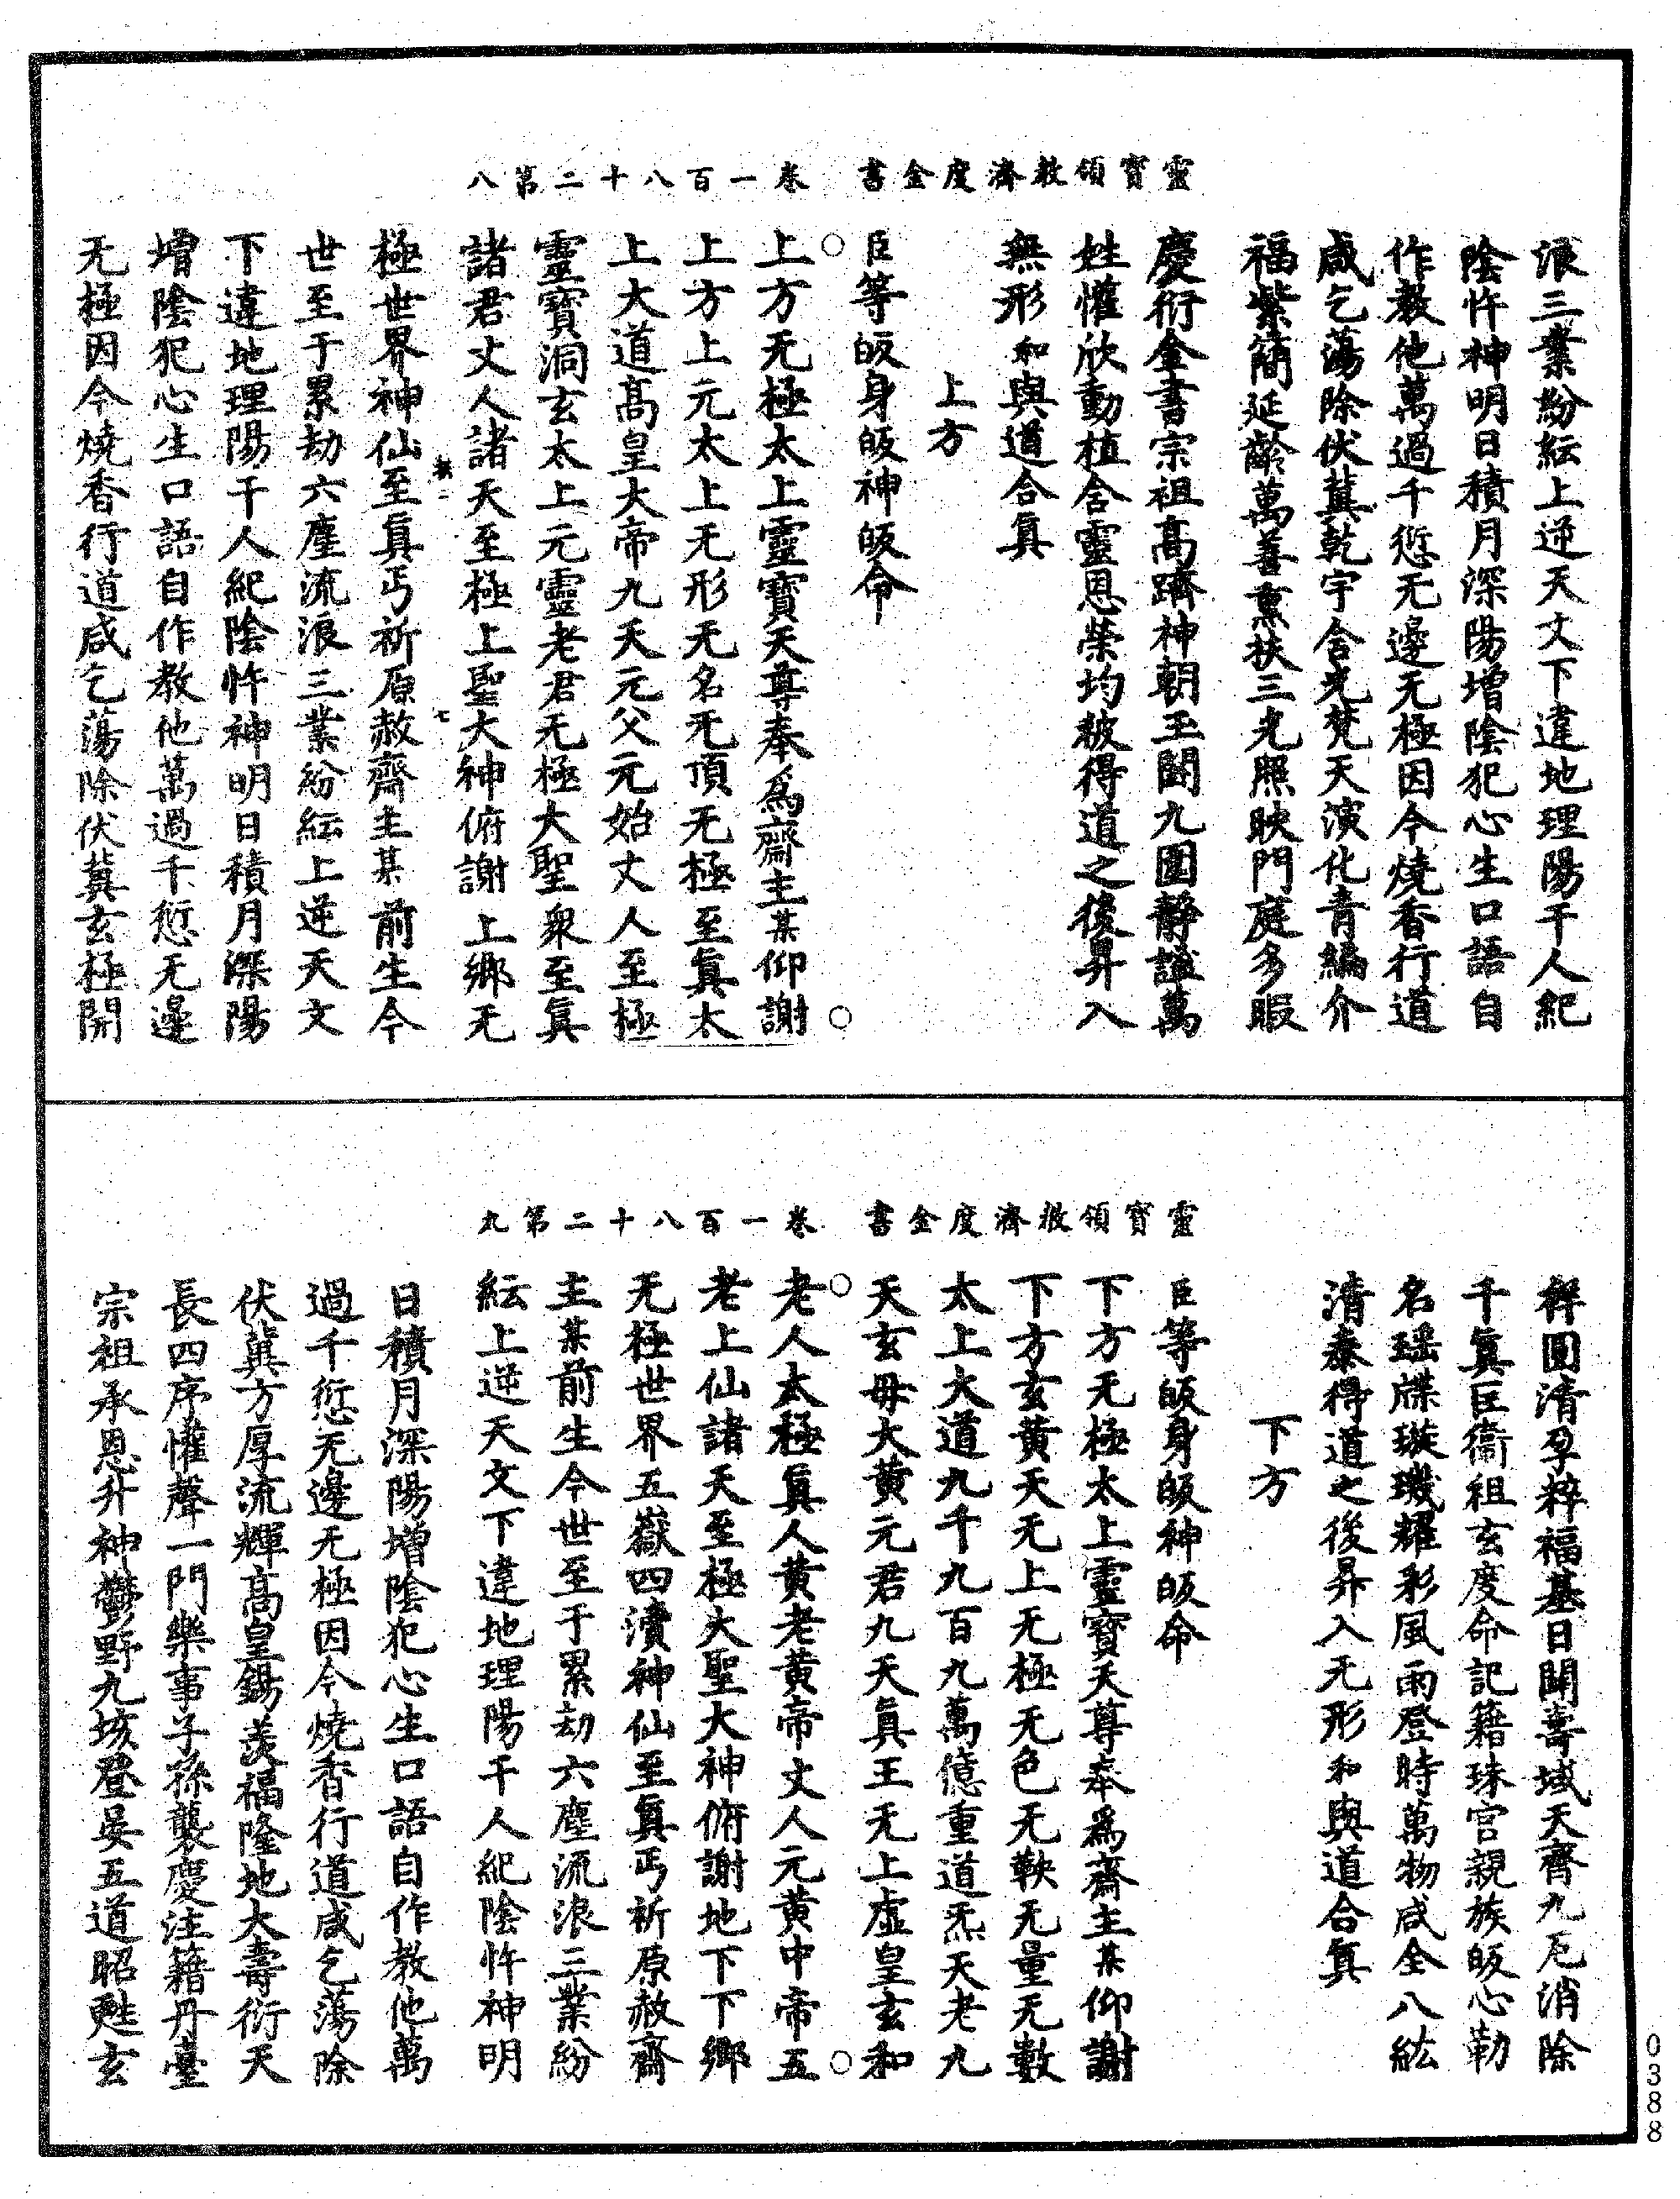 靈寶領教濟度金書　卷一百八十二第八
浪三業紛紜上逆天文下違地理陽干人紀
陰忤神明日積月深陽增陰犯心生口語自
作教他萬過千愆无邊无極因今燒香行道
咸乞蕩除伏冀乾宇含光梵天演化青編介
福紫簡延齡萬善熏扶三光照映門庭多暇
慶衍金書宗祖高躋神朝玉闕九圍靜謐萬
姓懽欣動植含靈恩榮均被得道之後昇入
無形和與道合真
上方
臣等皈身皈神皈命
上方无極太上靈寶天尊奉爲齋主某仰謝
上方上元太上无形无名无頂无極至真太
上大道高皇大帝九天元父元始丈人至極
靈寶洞玄太上元靈老君无極大聖衆至真
諸君丈人諸天至極上聖大神俯謝上鄉无
極世界神仙至真丐祈原赦齋主某前生今
世至于累劫六塵流浪三業紛紜上逆天文
下違地理陽干人紀陰忤神明日積月深陽
增陰犯心生口語自作教他萬過千愆无邊
无極因今燒香行道咸乞蕩除伏冀玄極開
靈寶領教濟度金書　卷一百八十二第九
祥圓清孕粹福基日闢壽域天齊九厄消除
千真臣衞祖玄度命記籍珠宮親族皈心勒
名瑤牒璇璣耀彩風雨登時萬物咸全八紘
清泰得道之後昇入无形和與道合真
下方
臣等皈身皈神皈命
下方无極太上靈寶天尊奉爲齋主某仰謝
下方玄黃天无上无極无色无鞅无量无數
太上大道九千九百九萬億重道炁天老九
天玄母大黃元君九天真王无上虛皇玄和
老人太極真人黃老黃帝丈人元黃中帝五
老上仙諸天至極大聖大神俯謝地下下鄉
无極世界五嶽四瀆神仙至真丐祈原赦齋
主某前生今世至于累劫六塵流浪三業紛
紜上逆天文下違地理陽干人紀陰忤神明
日積月深陽增陰犯心生口語自作教他萬
過千愆无邊无極因今燒香行道咸乞蕩除
伏冀方厚流輝高皇錫羨福隆地大壽衍天
長四序懽聲一門樂事子孫襲慶注籍丹臺
宗祖承恩升神鬱野九垓登昊五道昭甦玄
0388